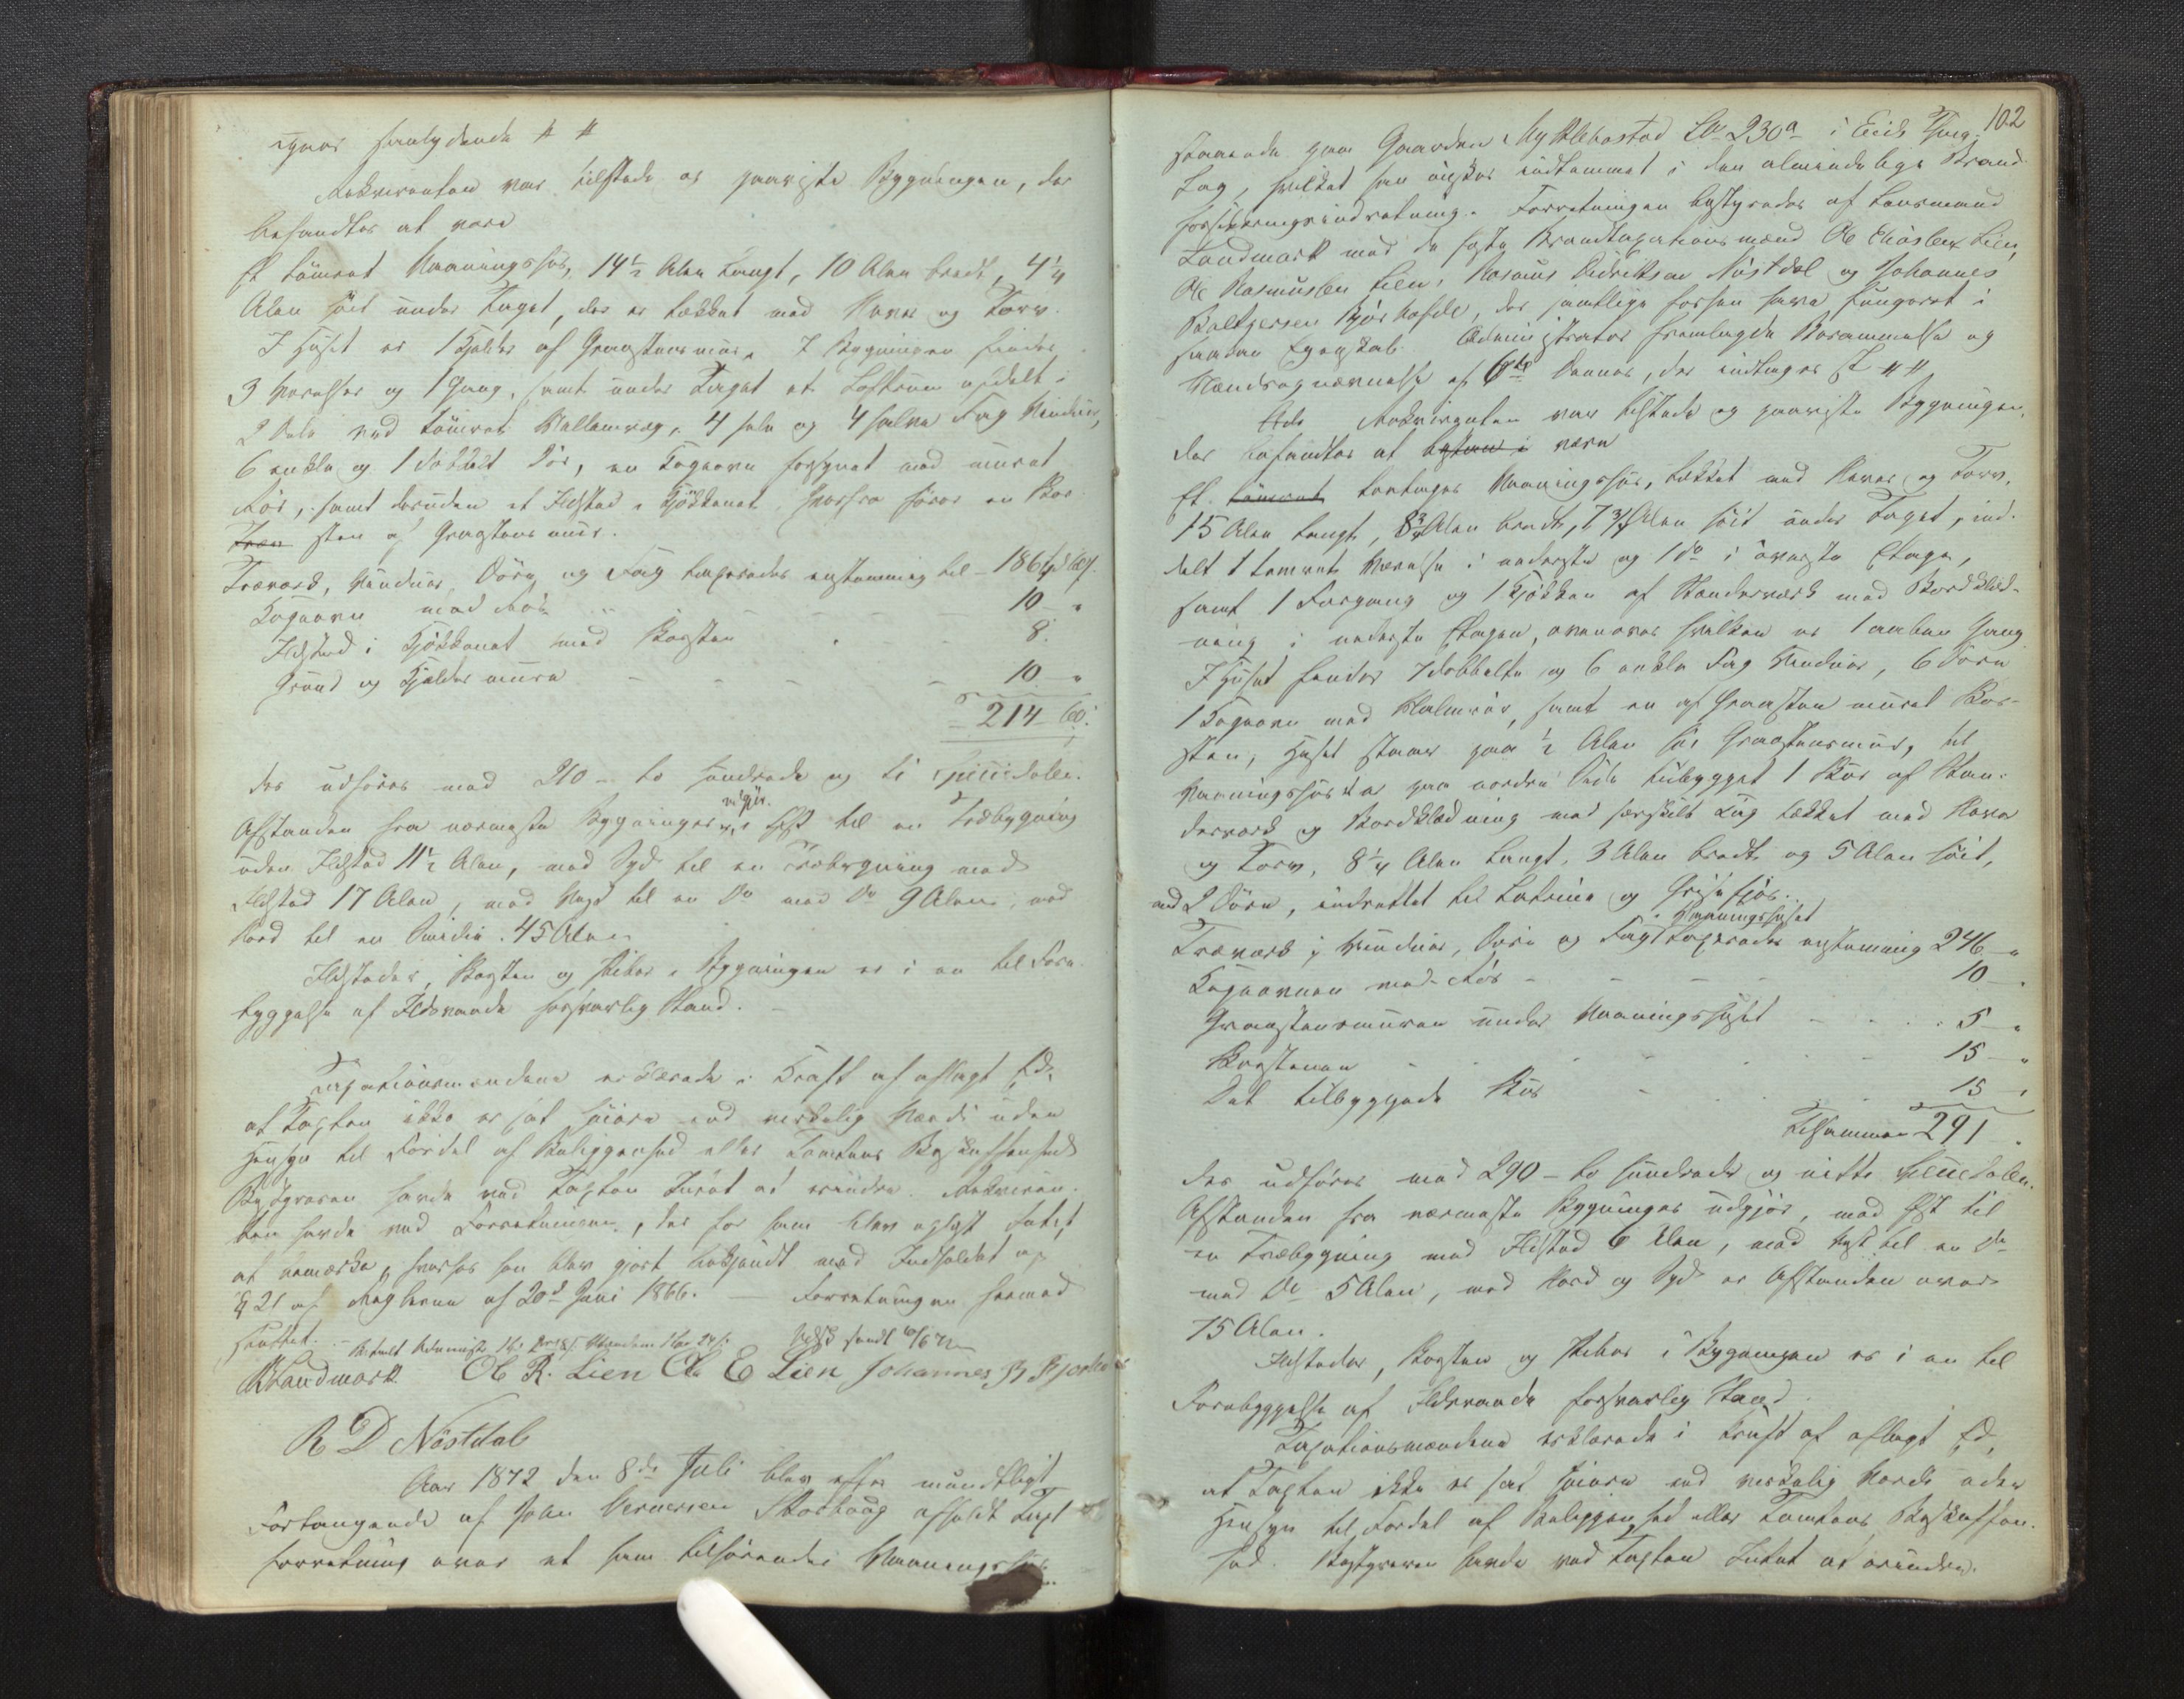 Rekvirenten var tilstede og paaviste Bygningen, der
befandtes at være
Et tømret Vaaningshus, 14½ Alen langt, 10 Alen bredt, 4¼
Alen høit under Taget, der er tækket med Næver og Torv.
I Huset er 1 Kjelder af Graastensmur. I Bygningen findes
3 Værelser og 1 Gang, samt under Taget et Loftrum afdelt i
2 Dele ved tømret Mellemvæg, 4 hele og 4 halve Fag Vinduer,
6 enkle og 1 dobbelt Dør, en Kogeovn forsynet med muret
Rør, samt desuden et Ildsted i Kjøkkenet hvorfra fører en Skor-
sten af Graastensmur.
Træværk, Vinduer, Døre og Tag taxeredes enstemmig til 186
Kogeovn med Rør 10 "
Ildsted i Kjøkkenet med Skorsten 8
Grund og Kjeldermure 10 "
214
der udføres med 210 - to hundrede og ti Speciedaler.
Afstanden fra nærmeste Bygninger udgjør i Øst til en Træbygning
uden Ildsted 11½ Alen, mod Syd til en Træbygning med
Ildsted 17 Alen, mod Vest til en Do med Do 9 Alen, mod
Nord til en Smidie 45 Alen
Ildsteder, Skorsten og Piber i Bygningen er i en til Fore-
byggelse af Ildsvaade forsvarlig Stand.
Taxationsmændene erklærede i Kraft af aflagt Ed,
at Taxten ikke er sat høiere end virkelig Værdi uden
Hensyn til Fordel af Beliggenhed eller Tomtens Beskaffenhed
Bestyreren havde ved Taxten Intet at erindre. Rekviren-
ten havde ved Forretningen, der for ham blev oplæst Intet
at bemærke, hvorfor han blev gjort bekjendt med Indholdet af
§ 21 af Reglerne af 20de Juni 1866. — Forretningen hermed
sluttet.
Landmark Ole R. Lien Ole E Lien Johannes B Bjørhov
R D Nøstdal
Aar 1872 den 8de Juli blev efter mundtligt
Forlangende af John Vernersen Storhoug afholdt Taxt
forretning over et ham tilhørende Vaaningshus
102
staaende paa Gaarden Myklebostad Lb 230a i Eids Thing-
lag, hvilket han ønsker indtemmet i den almindelige Brand-
forsikringsindretning. Forretningen bestyredes af Lensmand
Landmark med de faste Brandtaxationsmænd Ole Eliassen Lien,
Ole Rasmussen Lien, Rasmus Didriksen Nøstdal og Johannes
Baltzersen Bjørhovde, der samtlige forhen have fungeret i
saadan Egenskab. Administrator fremlagde Berammelse og
Mændsopnævnelse af 6te Dennes, der indtages St # #
Rekvirenten var tilstede og paaviste Bygningen,
der befandtes at bestaa i være
Et tømret toetages Vaaningshus, tækket med Næver og Torv,
15 Alen langt, 8¾ Alen bredt, 7¾ Alen høit under Taget, ind-
delt 1 tømret Værelse i nederste og 1 do i øverste Etage,
samt 1 Forgang og 1 Kjøkken af Stenderværk med Bordklæd-
ning i nederste Etagen, ovenover hvilken er 1 aaben Gang
I Huset findes 7 dobbelte og 6 enkle Fag Vinduer, 6 Døre
1 Kogeovn med Malmrør, samt en af Graasten muret Skor-
sten, Huset staaer paa ½ Alen høi Graastensmur, til
Vaaningshuset er paa nordre Side tilbygget 1 Skur af Sten-
derværk og Bordklædning med særskilt Tag tækket med Næver
og Torv, 8¼ Alen langt, 3 Alen bredt og 5 Alen høit,
med 2 Døre, indrettet til Latrine og Grisefjøs.
Træværk, Vinduer, Døre og Tag i Vaaningshuset taxeredes enstemmig 246 "
Kogeovnen med Rør 10 "
Graastensmuren under Vaaningshuset 5 "
Skorstenen 15 "
Det tilbyggede Skur 15 "
Tilsammen 291
der udføres med 290 - to hundrede og nitti Speciedaler.
Afstanden fra nærmeste Bygninger udgjør, mod Øst til
en Træbygning med Ildsted 6 Alen, mod Vest til en Do
med Do 5 Alen, mod Nord og Syd er Afstanden over
75 Alen.
Ildsteder, Skorsten og Piber i Bygningen er i en til
Forebyggelse af Ildsvaade forsvarlig Stand.
Taxationsmændene erklærede i Kraft af aflagt Ed,
at Taxten ikke er sat høiere end virkelig Værdi uden
Hensyn til Fordel af Beliggenhed eller Tomtens Beskaffen-
hed. Bestyreren havde ved Taxten Intet at erindre.